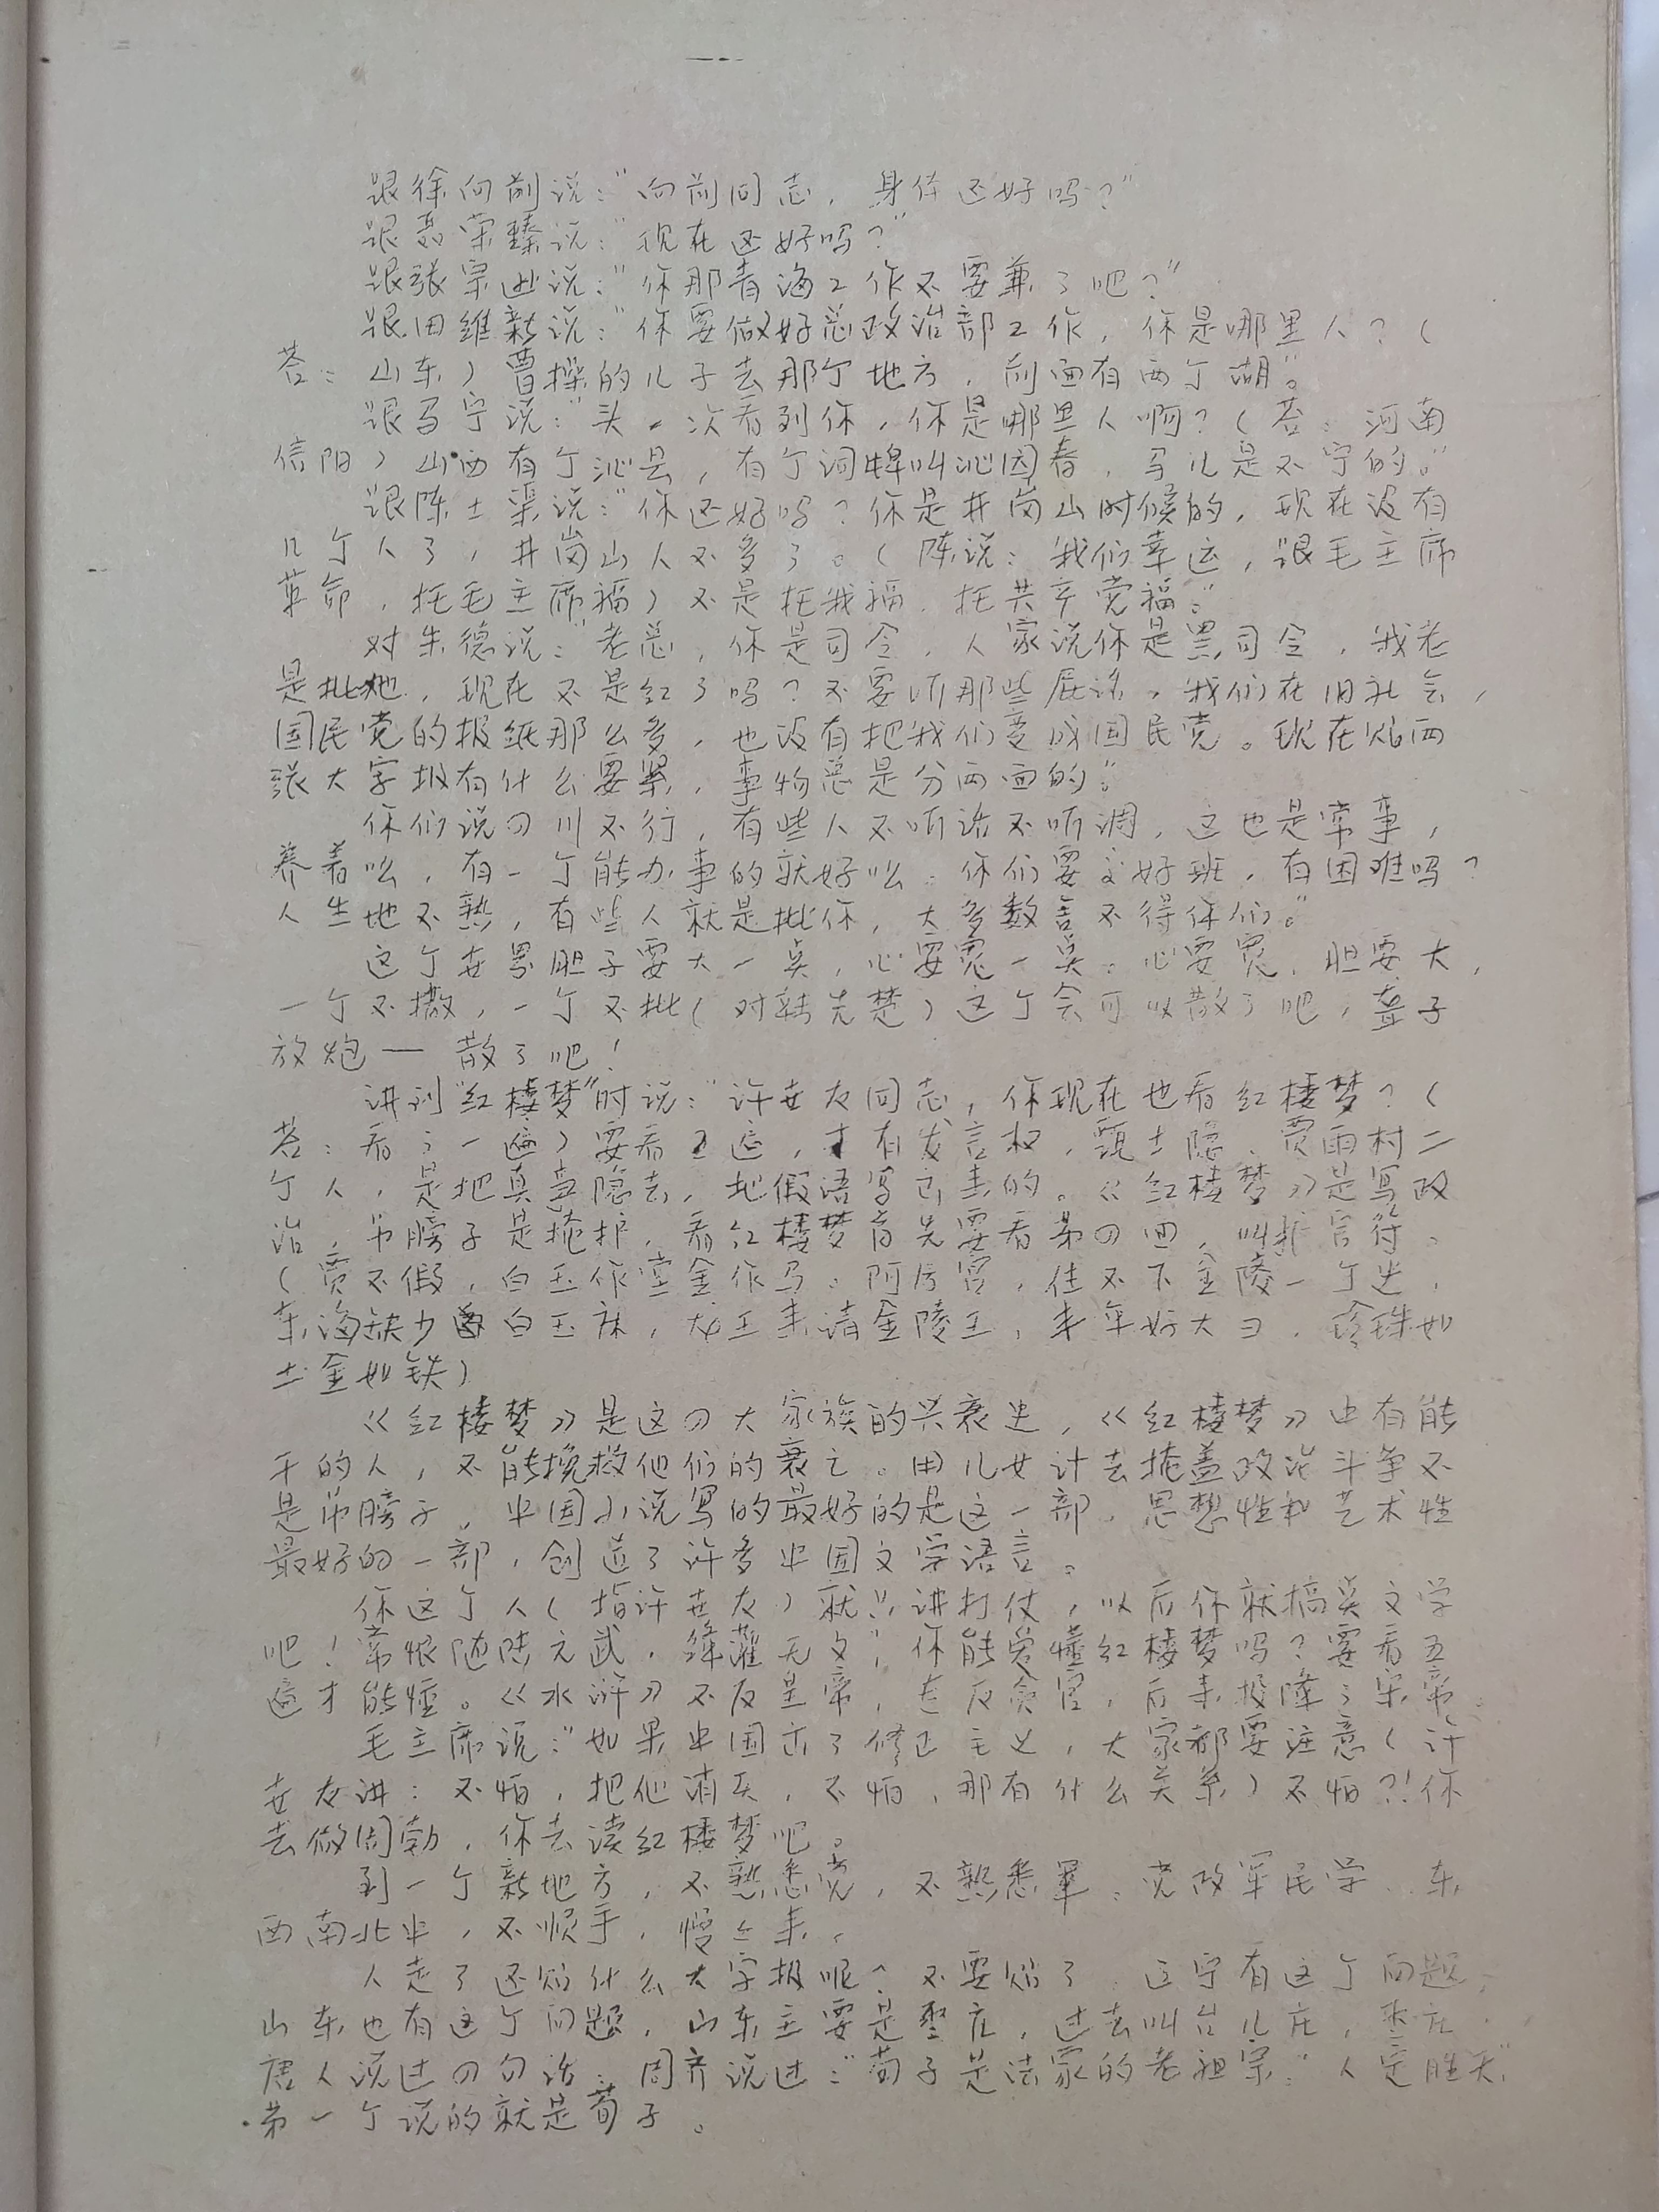 跟徐向前说：“向前同志，身体还好吗？”
跟聂荣臻说：“现在还好吗？”
跟张宗逊说：“你那青海工作不要兼了吧？”
跟田维新说：“你要做好总政治部工作，你是哪里人？（
答：山东）曹操的儿子去那个地方，前面有两个湖”。
跟马宁说：“头一次看到你，你是哪里人啊？（答：河南
信阳）山西有个沁县，有个词牌叫沁园春，马儿是不宁的。”
跟陈士渠说：“你还好吗？你是井岗山时候的，现在没有
几个人了，井岗山人不多了。（陈说：我们幸运，跟毛主席
革命，托毛主席福）不是托我福，托共产党福。”
对朱德说：“老总，你是司令，人家说你是黑司令，我老
是批他，现在不是红了吗？不要听那些屁话，我们在旧社会，
国民党的报纸那么多，也没有把我们变成国民党。现在贴两
张大字报有什么要紧，事物总是分两面的。”
你们说四川不行，有些人不听话不听调，这也是常事，
养着吆，有一个能办事的就好吆。你们要交好班，有困难吗？
人生地不熟，有些人就是批你，大多数害不得你们。”
这个世界胆子要大一点，心要宽一点。心要宽，胆要大，
一个不撒，一个不批（对韩先楚）这个会可以散了吧，聋子
放炮—散了吧！
讲到“红楼梦”时说：“许世友同志，你现在也看红楼梦？（
答：看了一遍）要看五遍，才有发言权，甄士隐、贾雨村二
个人，是把真事隐去，把假语写出来的。《红楼梦》是写政
治，吊膀子是掩护，看红楼梦首先要看第四回，叫护官符。
（贾不假，白玉作堂金作马。阿房宫，住不下金陵一个史，
东海缺少白玉床，龙王来请金陵王，丰年好大ヨ，珍珠如
土金如铁）
《红楼梦》是这四大家族的兴衰史，《红楼梦》中有能
干的人，不能挽救他们的衰亡。用儿女计去掩盖政治斗争不
是吊膀子，中国小说写的最好的是这一部，思想性和艺术性
最好的一部，创造了许多中国文学语言。
你这个人（指许世友）就只讲打仗，以后你就搞点文学
吧！常恨随陆无武，绛灌无文，你能看懂红楼梦吗？要看五
遍才能懂。《水浒》不反皇帝，专反贪官，后来投降了宋帝。
毛主席说：“如果中国出了修正主义，大家都要注意（许
世友讲：不怕，把他消灭，不怕，那有什么关系）不怕？！你
去做周勃，你去读红楼梦吧。
到一个新地方，不熟悉党，不熟悉军。党政军民学，东
西南北中，不顺手，慢々来，
人走了还贴什么大字报呢？不要贴了，辽宁有这个问题，
山东也有这个问题，山东主要是枣庄，过去叫台儿庄，枣庄，
唐人说过四句话，周齐说过：“荀子是法家的老祖宗。”人定胜天”
第一个说的就是荀子。